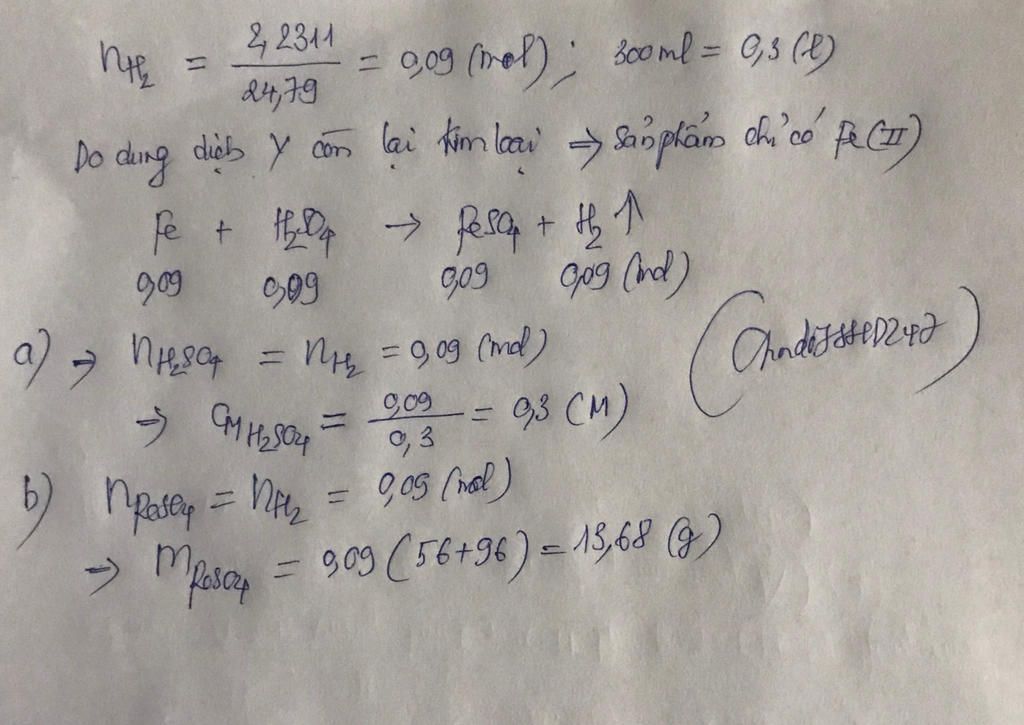 nH2 = 2,2311 / 24,79 = 0,09 (mol) ; 300ml = 0,3 (l)
Do dung dịch Y còn lại kim loại ⇒ sản phẩm chỉ có Fe(II)
Fe + H2SO4 → FeSO4 + H2 ↑
0,09 0,09 0,09 0,09 (mol)
a) ⇒ nH2SO4 = nH2 = 0,09 (mol)
⇒ CM H2SO4 = 0,09 / 0,3 = 0,3 (M)
b) nFeSO4 = nH2 = 0,09 (mol)
⇒ mFeSO4 = 0,09 (56+96) = 13,68 (g)